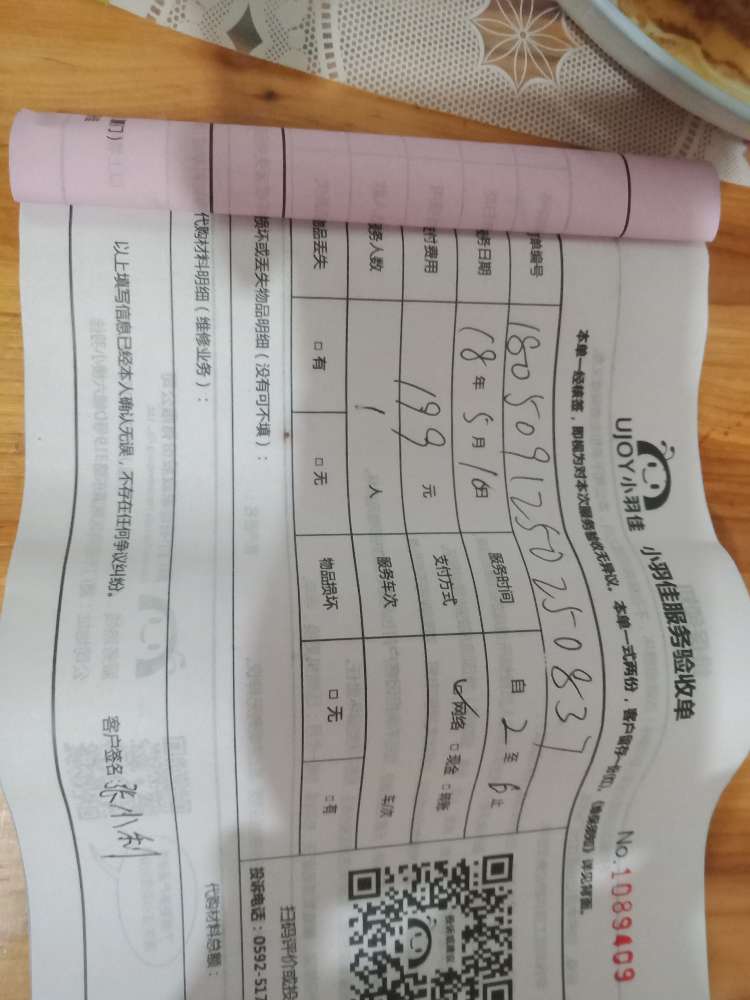 UJOY小羽佳 小羽佳服务验收单
No.1089409
本单一经核签，即视为对本次服务验收无异议。本单一式两份，客户留存一份
单编号 180509125025083
务日期 18年5月10日 服务时间 自2至6止
付费用 199元 支付方式 网络 □现金 □
务人数 1人 服务车次 车次
品丢失 □有 □无 物品损坏 □无 □有
损坏或丢失物品明细（没有可不填）：
代购材料明细（维修业务）：
代购材料总额：
以上填写信息已经本人确认无误，不存在任何争议纠纷。 客户签名：张小利
扫码评价或投
投诉电话：0592-517